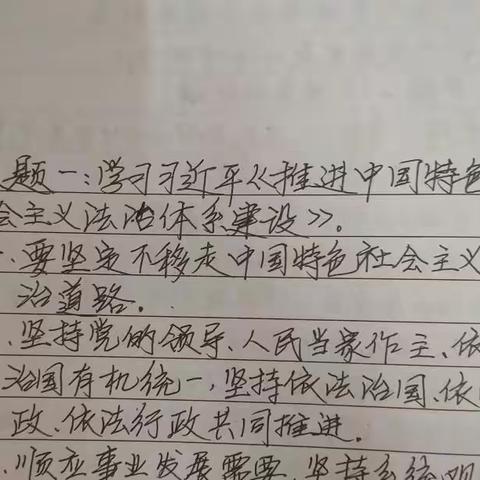 题一:学习习近平《推进中国特色
会主义法治体系建设》。
要坚定不移走中国特色社会主义
治道路.
坚持党的领导、人民当家作主、依
治国有机统一,坚持依法治国、依
政、依法行政共同推进.
顺应事业发展需要,坚持系统观